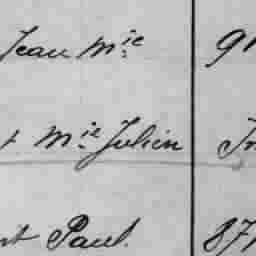 Jean Mie 91
t Mie Julien In
nt Paul. 871